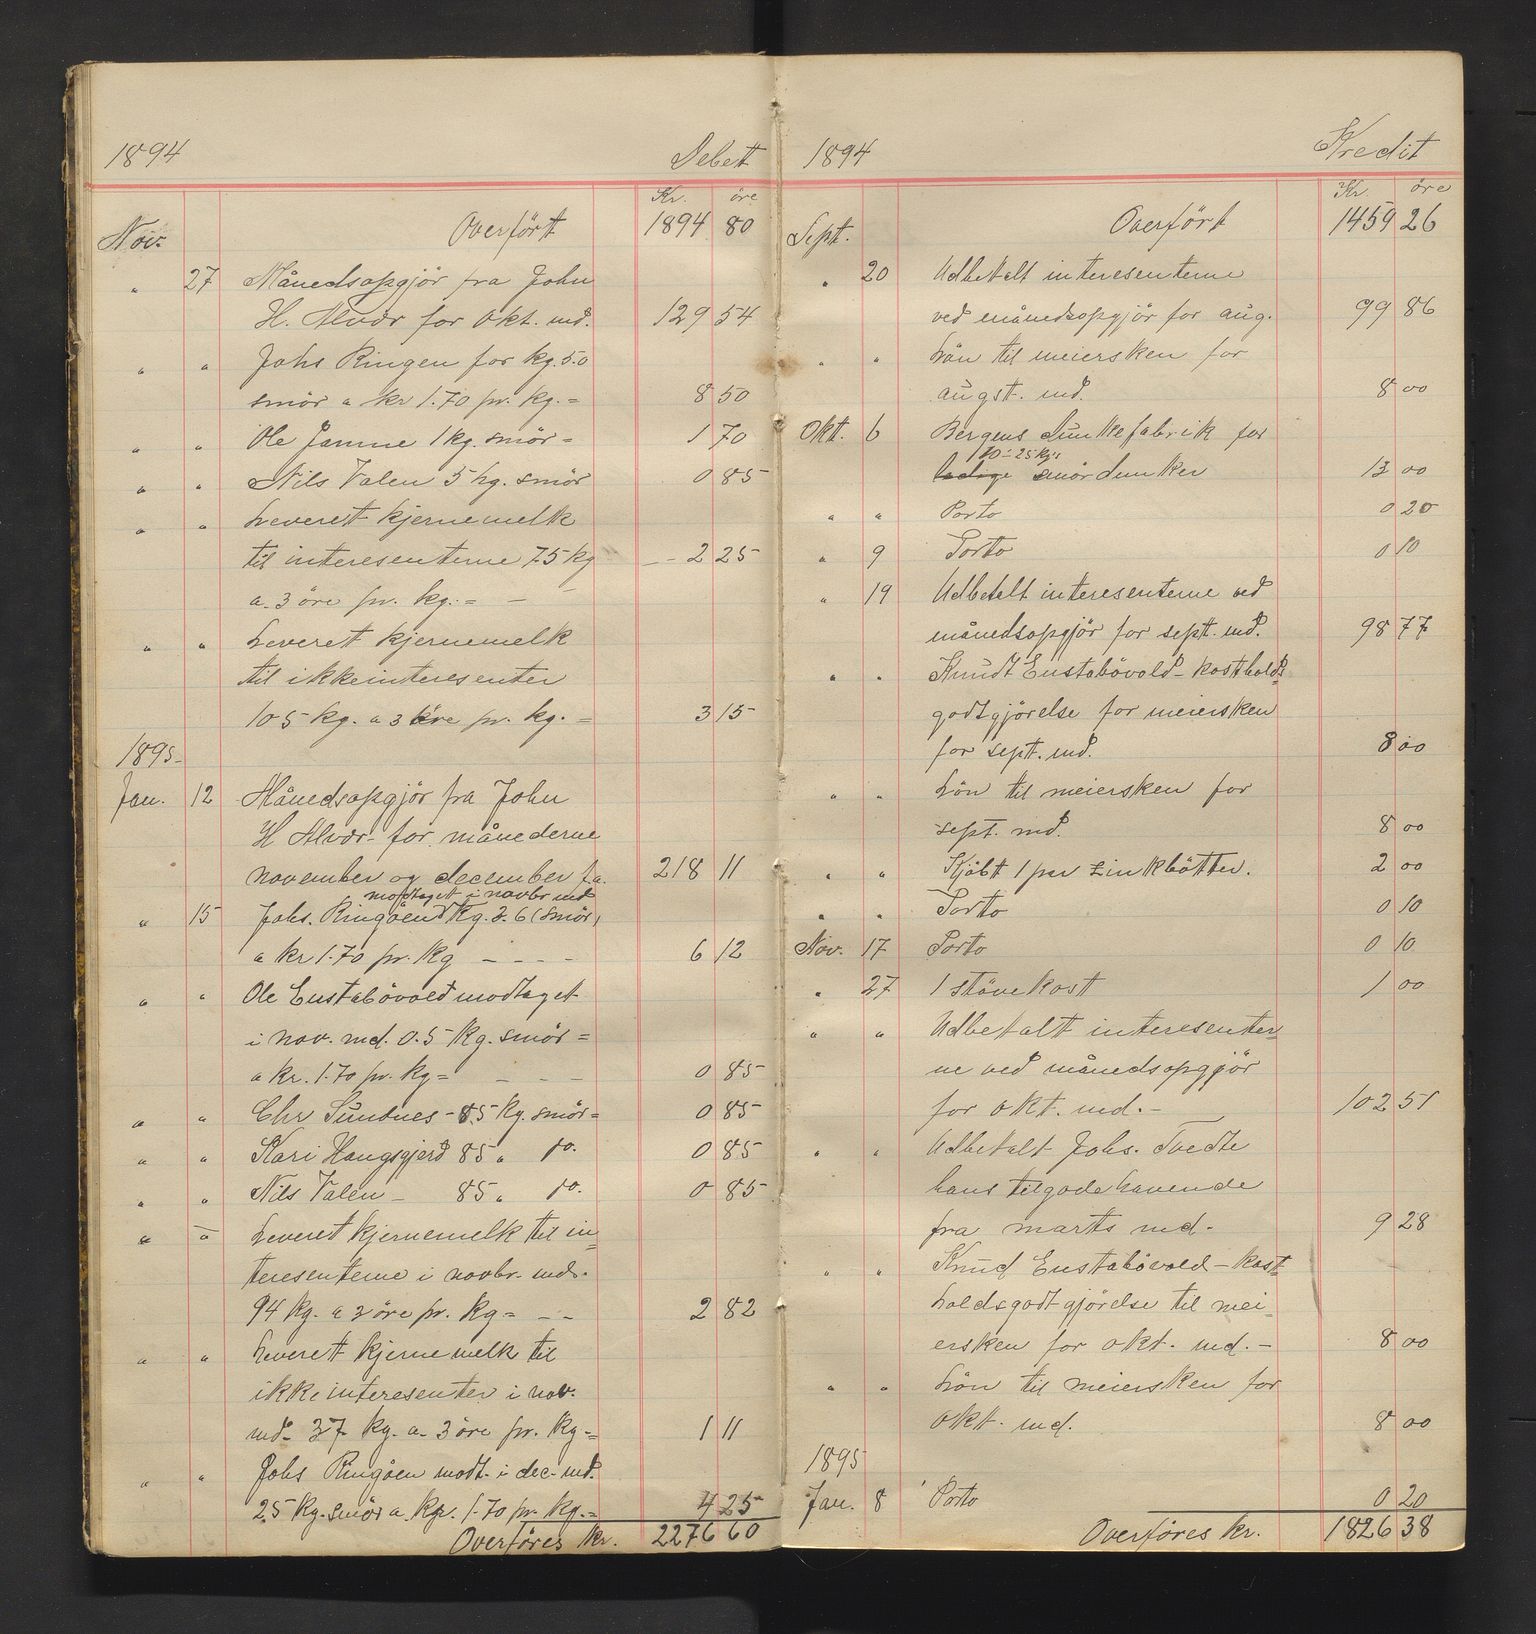 1894 Debet
Kr. öre
Nov. Overført 1894 80
" 27 Månedsopgjör fra John
H. Alvær for Okt. md. 129 54
" " Johs Ringen for kg. 5.0
smör a kr 1.70 pr. kg. = 8 50
" " Ole Jamne 1 kg. smör = 1 70
" " Nils Valen 5 hg. smör 0 85
" " Leveret kjernemelk
til interesenterne 75 kg 2 25
a 3 öre pr. kg. = - -
" " Leveret kjernemelk
til ikkeinteresenter
105 kg. a 3 öre pr. kg. = 3 15
1895
Jan. 12 Månedsopgjör fra John
H Alvær for månederne
november og december f.a. 218 11
modtaget i novbr md
" 15 Johs. Ringöen Kg. 3.6 (smör)
a kr 1.70 pr. Kg - - - - 6 12
" " Ole Eustabövold modtaget
i nov. md. 0.5 Kg. smör =
a kr. 1.70 pr. kg = - - - 0 85
" " Chr Sundnes - 85 kg. smör = 0 85
" " Kari Haugsgjerd 85 " do. 0 85
" " Nils Valen - 85 " do. 0 85
" " Leveret kjernemelk til in=
teresenterne i novbr. md.
94 kg. a 3 öre pr. kg = - - 2 82
" " Leverett kjernemelk til
ikkeinteresenter i nov.
md. 37 kg. a 3 öre pr. kg = 1 11
" " Johs Ringöen modt. i dec. md.
2.5 kg. smör a. kr. 1.70 pr. kg. = 4 25
Overföres kr. 2276 60
1894 Kredit
Kr. öre
Sept. Overfört 1459 26
" 20 Udbetalt interesenterne
ved månedsopgjör for aug. 99 86
" " Lön til meiersken for
augst. md. 8 00
Okt. 6 Bergens Dunkefabrik for
10 - 25 kg's
ledige smördunker 13 00
" " Porto 0 20
" 9 Porto 0 10
" 19 Udbetalt interesenterne ved
månedsopgjör for sept. md. 98 77
" " Knudt Eustabövold - kosthold=
godtgjörelse for meiersken
for sept. md. 8 00
" " Lön til meiersken for
sept. md. 8 00
" " Kjöbt 1 par zinkbötter. 2 00
" " Porto 0 10
Nov. 17 Porto 0 10
" 27 1 stövekost 1 00
" " Udbetalt interesenter=
ne ved månedsopgjör
for okt. md. - 102 51
" " Udbetalt Johs. Tvedte
hans tilgodehavende
fra marts md. 9 28
" " Knud Eustabövold - kost=
holdsgodtgjörelse til mei=
ersken for okt. md. - 8 00
" " Lön til meiersken for
okt. md. 8 00
1895
Jan. 8 Porto 0 20
Overföres kr. 1826 38